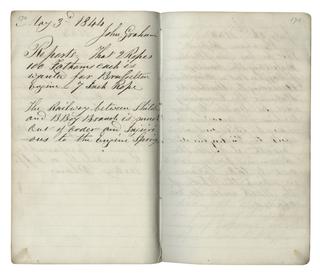 May 3d 1844
John Graham
Reports That 2 Ropes
100 Fathoms each is
wanted for Brusselton
Engine 7 Inch Rope
The Railway between Shildon
and B Branch is
out of order and Injuri
ous to the Engine Springs